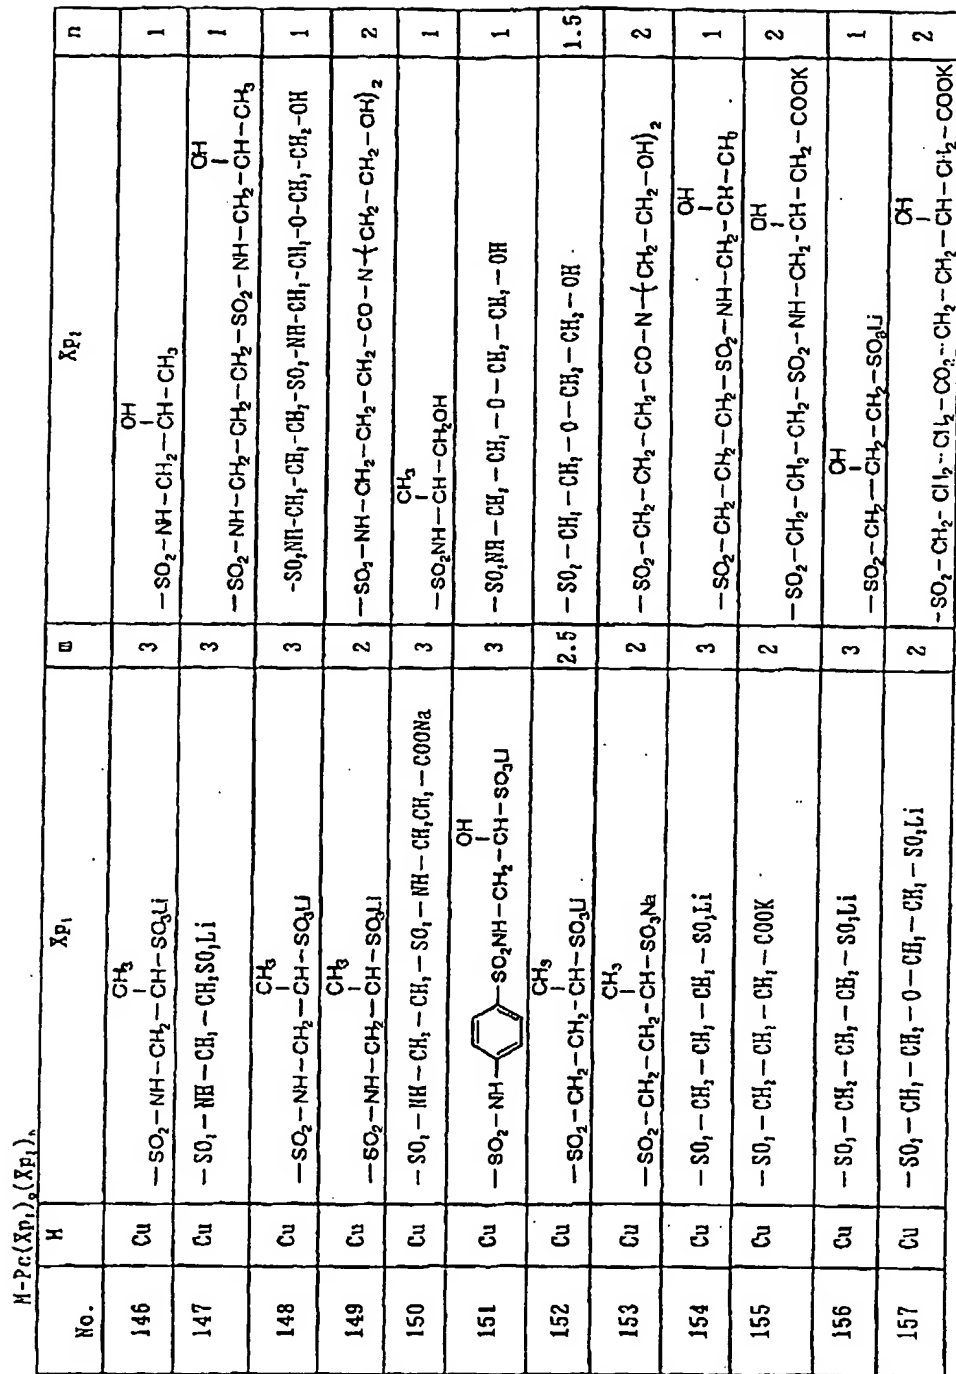 M-Pc(Xp₁)ₘ(Xp₂)ₙ
No. M Xp₁ m Xp₂ n
CH₃ OH
146 Cu —SO₂—NH—CH₂—CH—SO₃Li 3 —SO₂—NH—CH₂—CH—CH₃ 1
OH
147 Cu —SO₂—NH—CH₂—CH₂SO₃Li 3 —SO₂—NH—CH₂—CH₂—CH₂—SO₂—NH—CH₂—CH—CH₃ 1
CH₃
148 Cu —SO₂—NH—CH₂—CH—SO₃Li 3 -SO₂NH-CH₂-CH₂-CH₂-SO₂-NH-CH₂-CH₂-O-CH₂-CH₂-OH 1
CH₃
149 Cu —SO₂—NH—CH₂—CH—SO₃Li 2 —SO₂—NH—CH₂—CH₂—CH₂—CO—N(CH₂—CH₂—OH)₂ 2
CH₃
150 Cu —SO₂—NH—CH₂—CH₂—SO₂—NH—CH₂CH₂—COONa 3 —SO₂NH—CH—CH₂OH 1
OH
151 Cu —SO₂—NH— —SO₂NH—CH₂—CH—SO₃Li 3 —SO₂NH—CH₂—CH₂—O—CH₂—CH₂—OH 1
CH₃
152 Cu —SO₂—CH₂—CH₂—CH—SO₃Li 2.5 —SO₂—CH₂—CH₂—O—CH₂—CH₂—OH 1.5
CH₃
153 Cu —SO₂—CH₂—CH₂—CH—SO₃Na 2 —SO₂—CH₂—CH₂—CH₂—CO—N(CH₂—CH₂—OH)₂ 2
OH
154 Cu —SO₂—CH₂—CH₂—CH₂—SO₃Li 3 —SO₂—CH₂—CH₂—CH₂—SO₂—NH—CH₂—CH—CH₃ 1
OH
155 Cu —SO₂—CH₂—CH₂—CH₂—COOK 2 —SO₂—CH₂—CH₂—CH₂—SO₂—NH—CH₂—CH—CH₂—COOK 2
OH
156 Cu —SO₂—CH₂—CH₂—CH₂—SO₃Li 3 —SO₂—CH₂—CH₂—CH₂—SO₃Li 1
OH
157 Cu —SO₂—CH₂—CH₂—O—CH₂—CH₂—SO₃Li 2 -SO₂—CH₂—CH₂—CH₂—CO₂—CH₂—CH₂—CH—CH₂—COOK 2